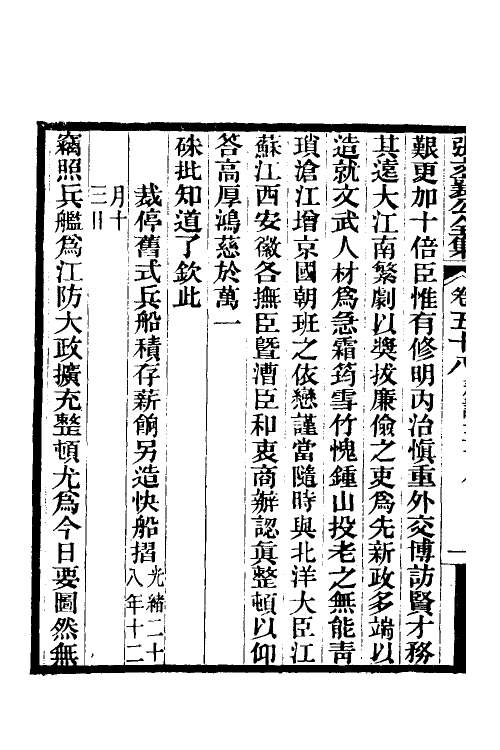 張文襄公全集 卷五十八 一
艱更加十倍臣惟有修明內治愼重外交博訪賢才務
其遠大江南繁劇以奬拔廉儉之吏爲先新政多端以
造就文武人材爲急霜筠雪竹愧鍾山投老之無能靑
瑣滄江增京國朝班之依戀謹當隨時與北洋大臣江
蘇江西安徽各撫臣曁漕臣和衷商辦認眞整頓以仰
答高厚鴻慈於萬一
硃批知道了欽此
裁停舊式兵船積存薪餉另造快船摺光緒二十八年十二
月十三日
竊照兵艦爲江防大政擴充整頓尤爲今日要圖然無